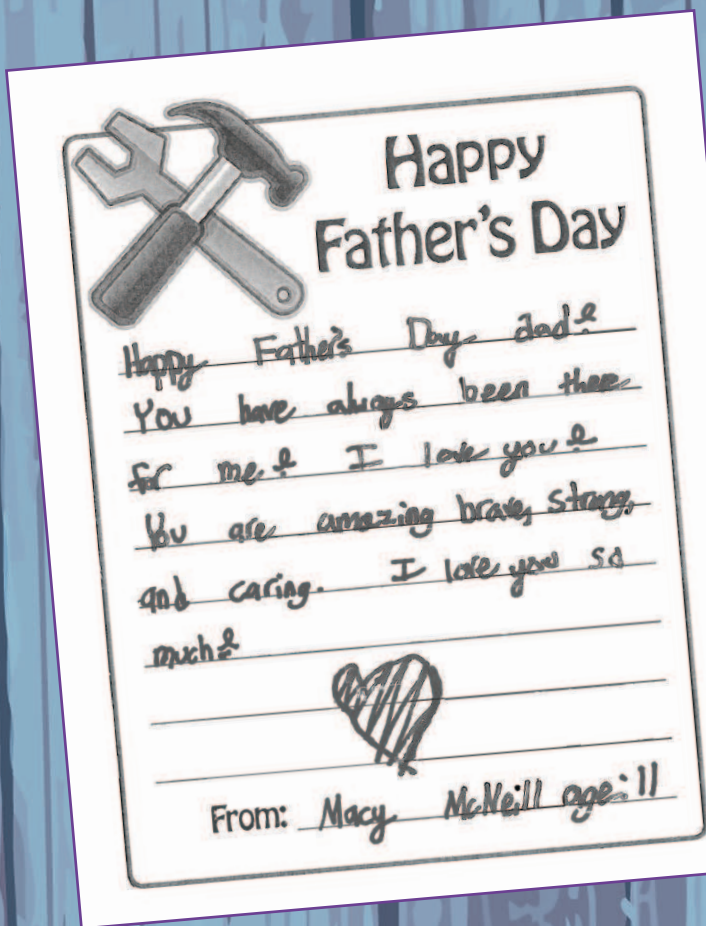 Happy
Father's Day
Happy Father's Day dad!
You have always been there
for me! I love you!
You are amazing brave, strong,
and caring. I love you so
much!
From: Macy McNeill age: 11